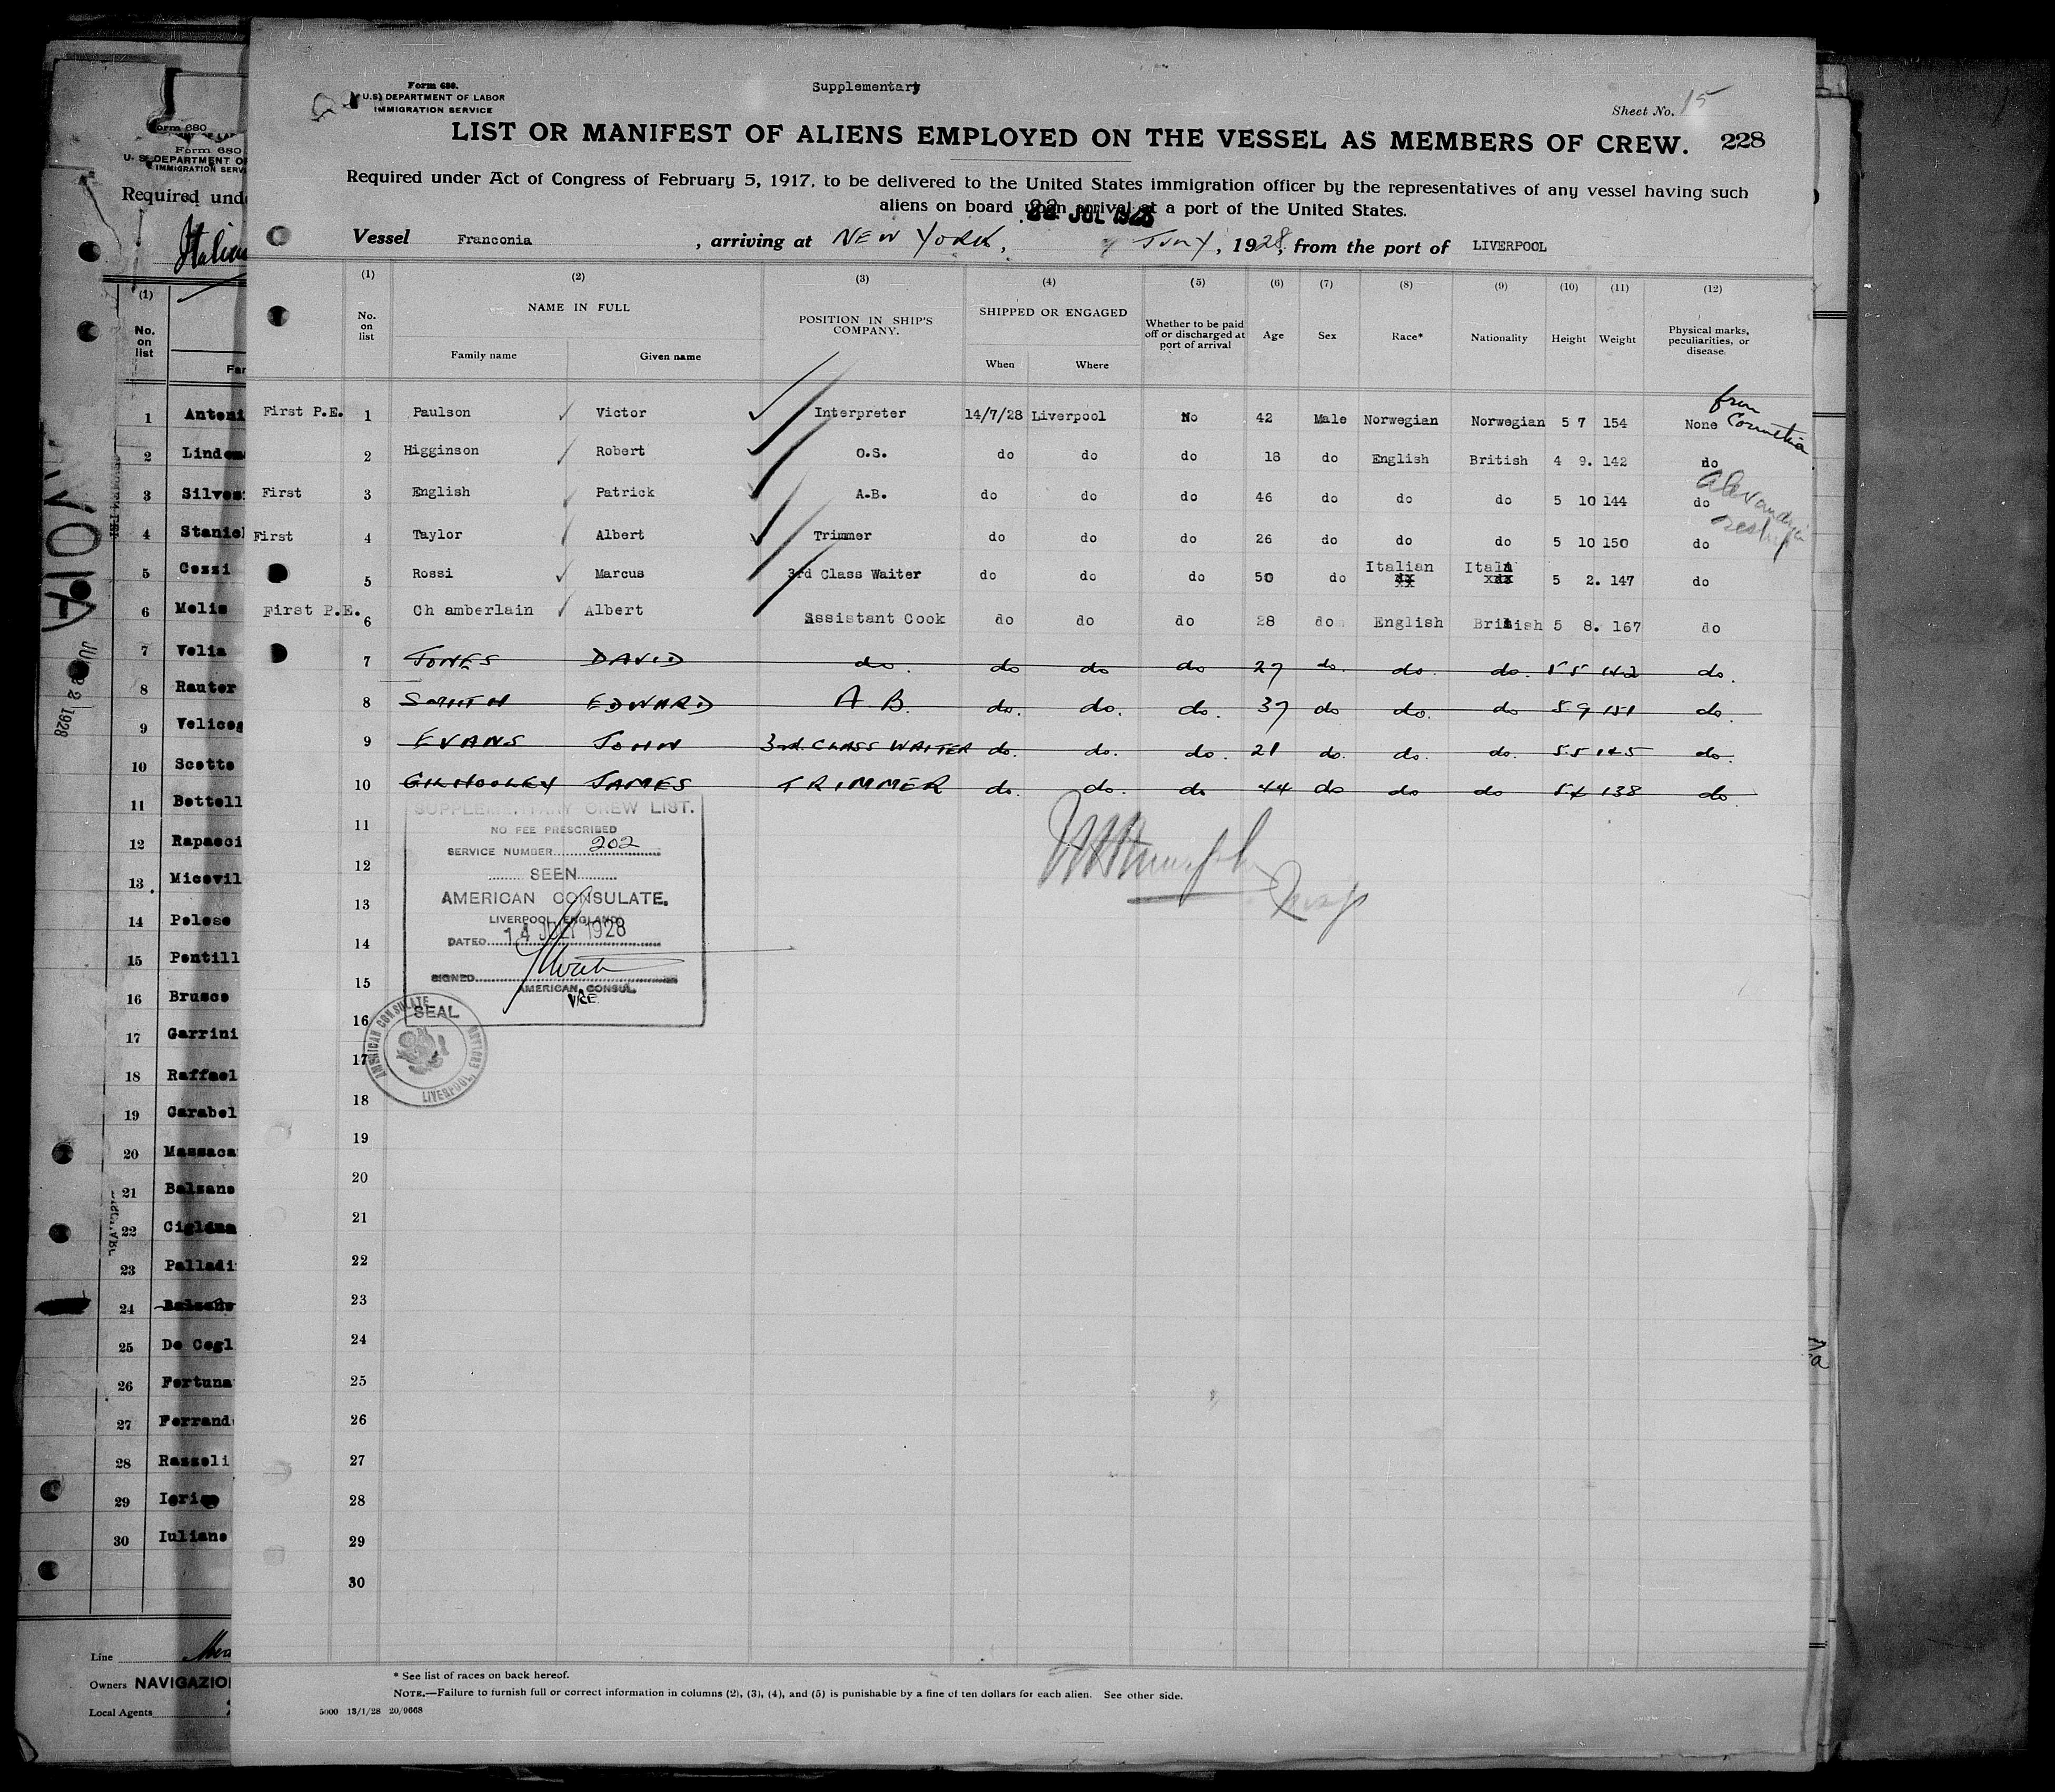 Form 680.
U.S. DEPARTMENT OF LABOR
IMMIGRATION SERVICE
Supplementary
Sheet No. 15
LIST OR MANIFEST OF ALIENS EMPLOYED ON THE VESSEL AS MEMBERS OF CREW. 228
Required under Act of Congress of February 5, 1917, to be delivered to the United States immigration officer by the representatives of any vessel having such
aliens on board upon arrival at a port of the United States.
22 JUL 1928
Vessel Franconia, arriving at NEW YORK, JULY, 1928, from the port of LIVERPOOL
(1) (2) (3) (4) (5) (6) (7) (8) (9) (10) (11) (12)
No. on list NAME IN FULL POSITION IN SHIP'S COMPANY. SHIPPED OR ENGAGED Whether to be paid off or discharged at port of arrival Age Sex Race* Nationality Height Weight Physical marks, peculiarities, or disease.
Family name Given name When Where
First P.E. 1 Paulson Victor Interpreter 14/7/28 Liverpool No 42 Male Norwegian Norwegian 5 7 154 None from
2 Higginson Robert O.S. do do do 18 do English British 4 9. 142 do
First 3 English Patrick A.B. do do do 46 do do do 5 10 144 do
First 4 Taylor Albert Trimmer do do do 26 do do do 5 10 150 do
5 Rossi Marcus 3rd Class Waiter do do do 50 do Italian Itali 5 2. 147 do
First P.E. 6 Ch amberlain Albert Assistant Cook do do do 28 do English British 5 8. 167 do
7 JONES DAVID do. do do do 27 do. do. do. 5 5 142 do.
8 SMITH EDWARD A B. do. do. do. 37 do do. do 5 9 151 do.
9 EVANS JOHN 3rd CLASS WAITER do. do. do. 21 do. do. do. 5 5 145 do.
10 GILHOOLEY JAMES TRIMMER do. do. do 44 do do do 138 do
11
12
13
14
15
16
17
18
19
20
21
22
23
24
25
26
27
28
29
30
SUPPLEMENTARY CREW LIST.
NO FEE PRESCRIBED
SERVICE NUMBER 202
SEEN
AMERICAN CONSULATE.
LIVERPOOL, ENGLAND
DATED 14 JULY 1928
SIGNED
AMERICAN CONSUL.
VICE
SEAL
AMERICAN CONSULATE
LIVERPOOL, ENGLAND
* See list of races on back hereof.
NOTE.—Failure to furnish full or correct information in columns (2), (3), (4), and (5) is punishable by a fine of ten dollars for each alien. See other side.
5000 13/1/28 20/9668
Form 680
Form 680
U. S. DEPARTMENT OF
IMMIGRATION SERV
Required und
(1)
No. on list
Fa
1 Antoni
2 Lindem
3 Silves
4 Staniel
5 Cozzi
6 Melis
7 Velia
8 Rauter
9 Velicog
10 Scotto
11 Bottell
12 Rapacci
13 Micovil
14 Pelose
15 Pontill
16 Brusco
17 Garrini
18 Raffael
19 Carabel
20 Massaca
21 Balsano
22
23 Palladi
24 Balsano
25 De Cegl
26 Fortuna
27 Ferrand
28 Rasseli
29
30 Iuliano
Line
Owners NAVIGAZIO
Local Agents